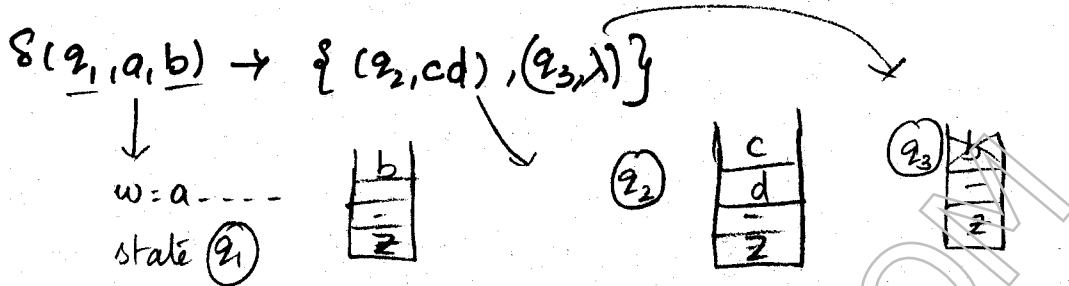 δ(q₁, a, b) → { (q₂, cd), (q₃, λ) }
w = a - - - -
state q₁
b
-
z
q₂
c
d
-
z
q₃
b
-
z